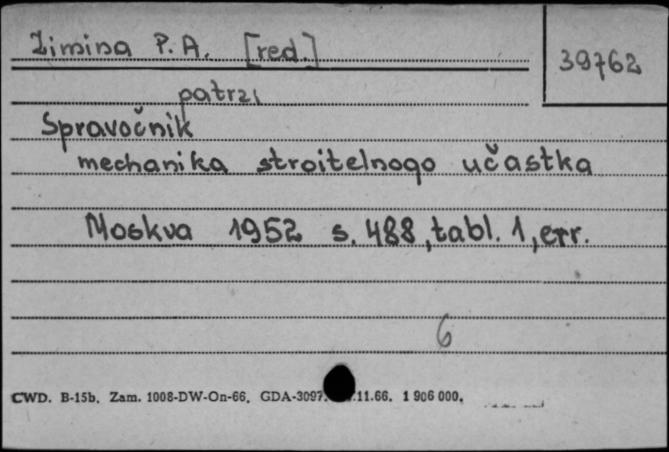 Zimina P. A. [red.]
39762
patrz
Spravočnik
mechanika stroitelnogo učastka
Moskva 1952 s. 488, tabl. 1, err.
6
CWD. B-15b, Zam. 1008-DW-On-66, GDA-3097. .11.66. 1 906 000,